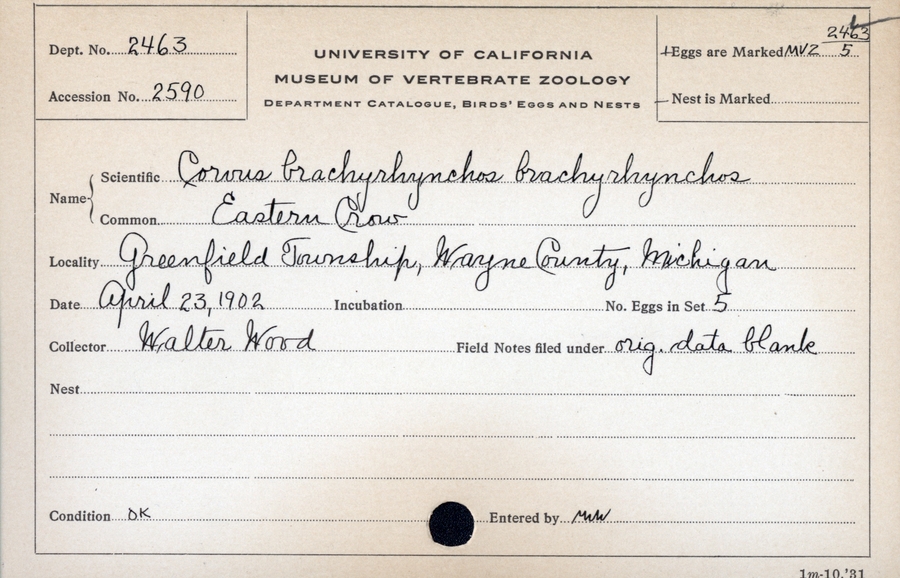 Dept. No. 2463
Accession No. 2590
UNIVERSITY OF CALIFORNIA
MUSEUM OF VERTEBRATE ZOOLOGY
DEPARTMENT CATALOGUE, BIRDS' EGGS AND NESTS
2463
Eggs are Marked MVZ 5
Nest is Marked
Name
Scientific Corvus brachyrhynchos brachyrhynchos
Common Eastern Crow
Locality Greenfield Township, Wayne County, Michigan
Date April 23, 1902 Incubation No. Eggs in Set 5
Collector Walter Wood Field Notes filed under orig. data blank
Nest
Condition OK Entered by
1m-10,'31